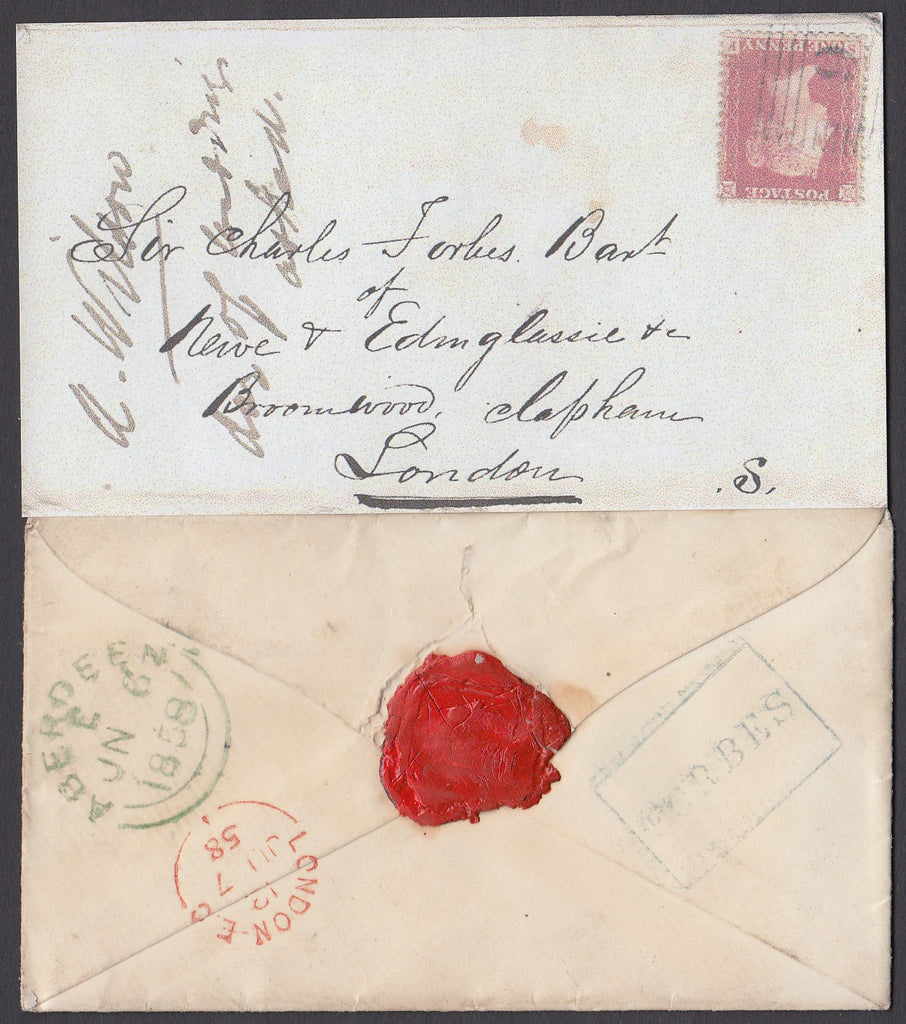 ONE PENNY
POSTAGE
A. Wilson
Sir Charles Forbes. Bart
of
Newe & Edinglassie &c
Broomwood, Clapham
London
S.
ABERDEEN
E
JN 6
1858
LONDON-E C
12
JU 7
58